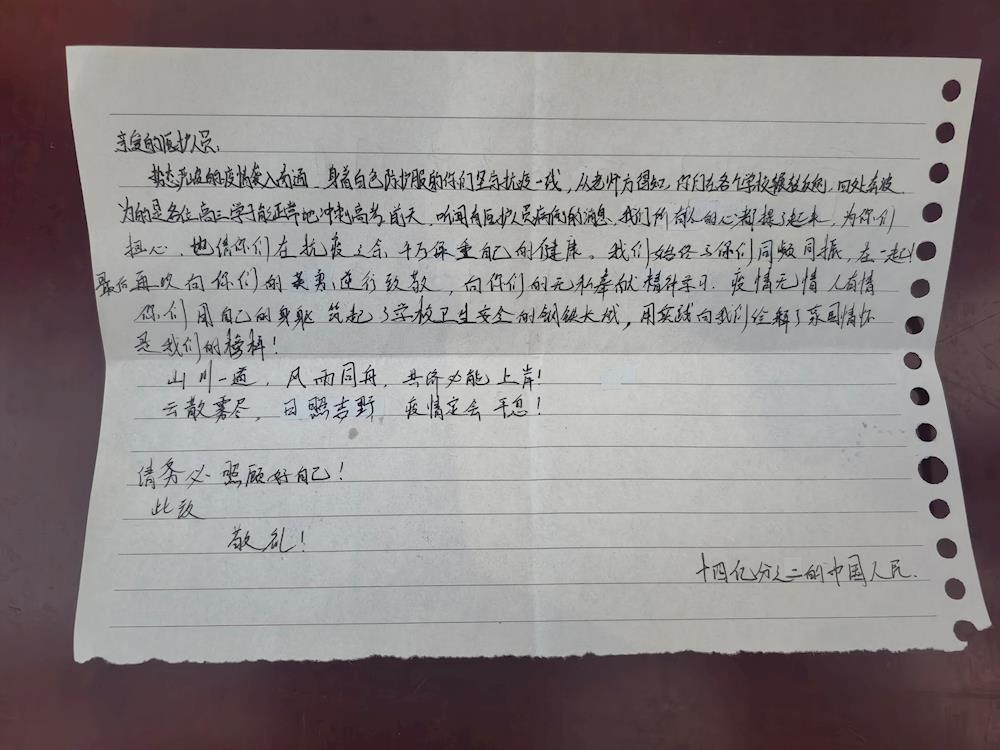 亲爱的医护人员:
势态严峻的疫情袭入南通、身着白色防护服的你们坚守抗疫一线,从老师方得知,你们在各个学校辗转反侧,四处奔波
为的是各位高三学子能正常地冲刺高考 前天、听闻有医护人员病倒的消息,我们所有人的心都揪了起来,为你们
担心、也请你们在抗疫之余 千万保重自己的健康。我们始终与你们同频同振,在一起!
最后再次向你们的英勇逆行致敬,向你们的无私奉献精神学习.疫情无情 人有情
你们用自己的身躯 筑起了学校卫生安全的钢铁长城,用实践向我们诠释了家国情怀
是我们的榜样!
山川一道,风雨同舟,共济必能上岸!
云散雾尽,日照吉野 疫情定会平息!
请务必照顾好自己!
此致
敬礼!
十四亿分之二的中国人民.